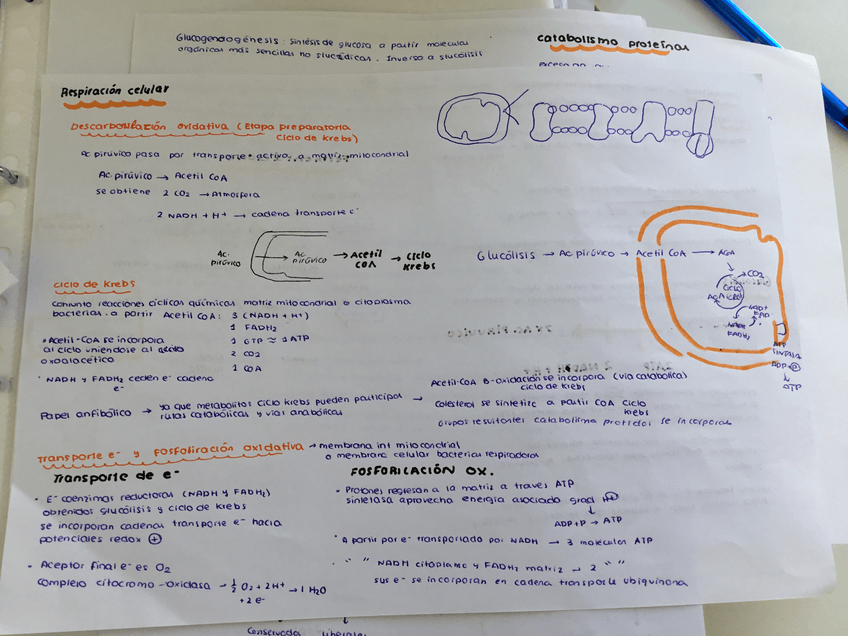 Glucogendogénesis: síntesis de glucosa a partir moléculas
orgánicas más sencillas no glucídicas. Inverso a glucólisis
catabolismo proteínas
Respiración celular
Descarboxilación oxidativa (Etapa preparatoria
Ciclo de Krebs)
Ac pirúvico pasa por transporte activo a matriz mitocondrial
Ac. pirúvico → Acetil CoA
se obtiene 2 CO₂ → Atmosfera
2 NADH + H⁺ → cadena transporte e⁻
Ac. pirúvico → Ac. pirúvico → Acetil CoA → Ciclo Krebs
Glucólisis → Ac pirúvico → Acetil CoA →
CO₂
Ciclo
NADH
FADH₂
ATP
sintasa
ADP + P
↓
ATP
Ciclo de Krebs
Conjunto reacciones cíclicas químicas matriz mitocondrial o citoplasma
bacterias. a partir Acetil CoA: 3 (NADH + H⁺)
1 FADH₂
1 GTP ≈ 1 ATP
2 CO₂
1 CoA
• Acetil-CoA se incorpora
al ciclo uniendose al ácido
oxoalacético
• NADH y FADH₂ ceden e⁻ cadena
e⁻
Acetil-CoA B-oxidación se incorpora (vía catabólica)
ciclo de Krebs
Papel anfibólico → ya que metabolitos ciclo krebs pueden participar →
rutas catabólicas y vías anabólicas
Colesterol se sintetiza a partir CoA ciclo
krebs
Grupos resultantes catabolismo proteídos se incorporan
Transporte e⁻ y fosforilación oxidativa → membrana int mitocondrial
o membrana celular bacterias respiradoras
Transporte de e⁻
• E⁻ coenzimas reductoras (NADH y FADH₂)
obtenidos glucólisis y ciclo de krebs
se incorporan cadenas transporte e⁻ hacia
potenciales redox ⊕
• Aceptor final e⁻ es O₂
complejo citocromo-oxidasa → ½ O₂ + 2H⁺ → 1 H₂O
+ 2 e⁻
FOSFORILACIÓN OX.
• Protones regresan a la matriz a través ATP
sintetasa aprovecha energía asociado grad H⊕
↓
ADP + P → ATP
• A partir por e⁻ transportado por NADH → 3 moléculas ATP
• " " NADH citoplama y FADH₂ matriz → 2 " "
sus e⁻ se incorporan en cadena transporte ubiquinona